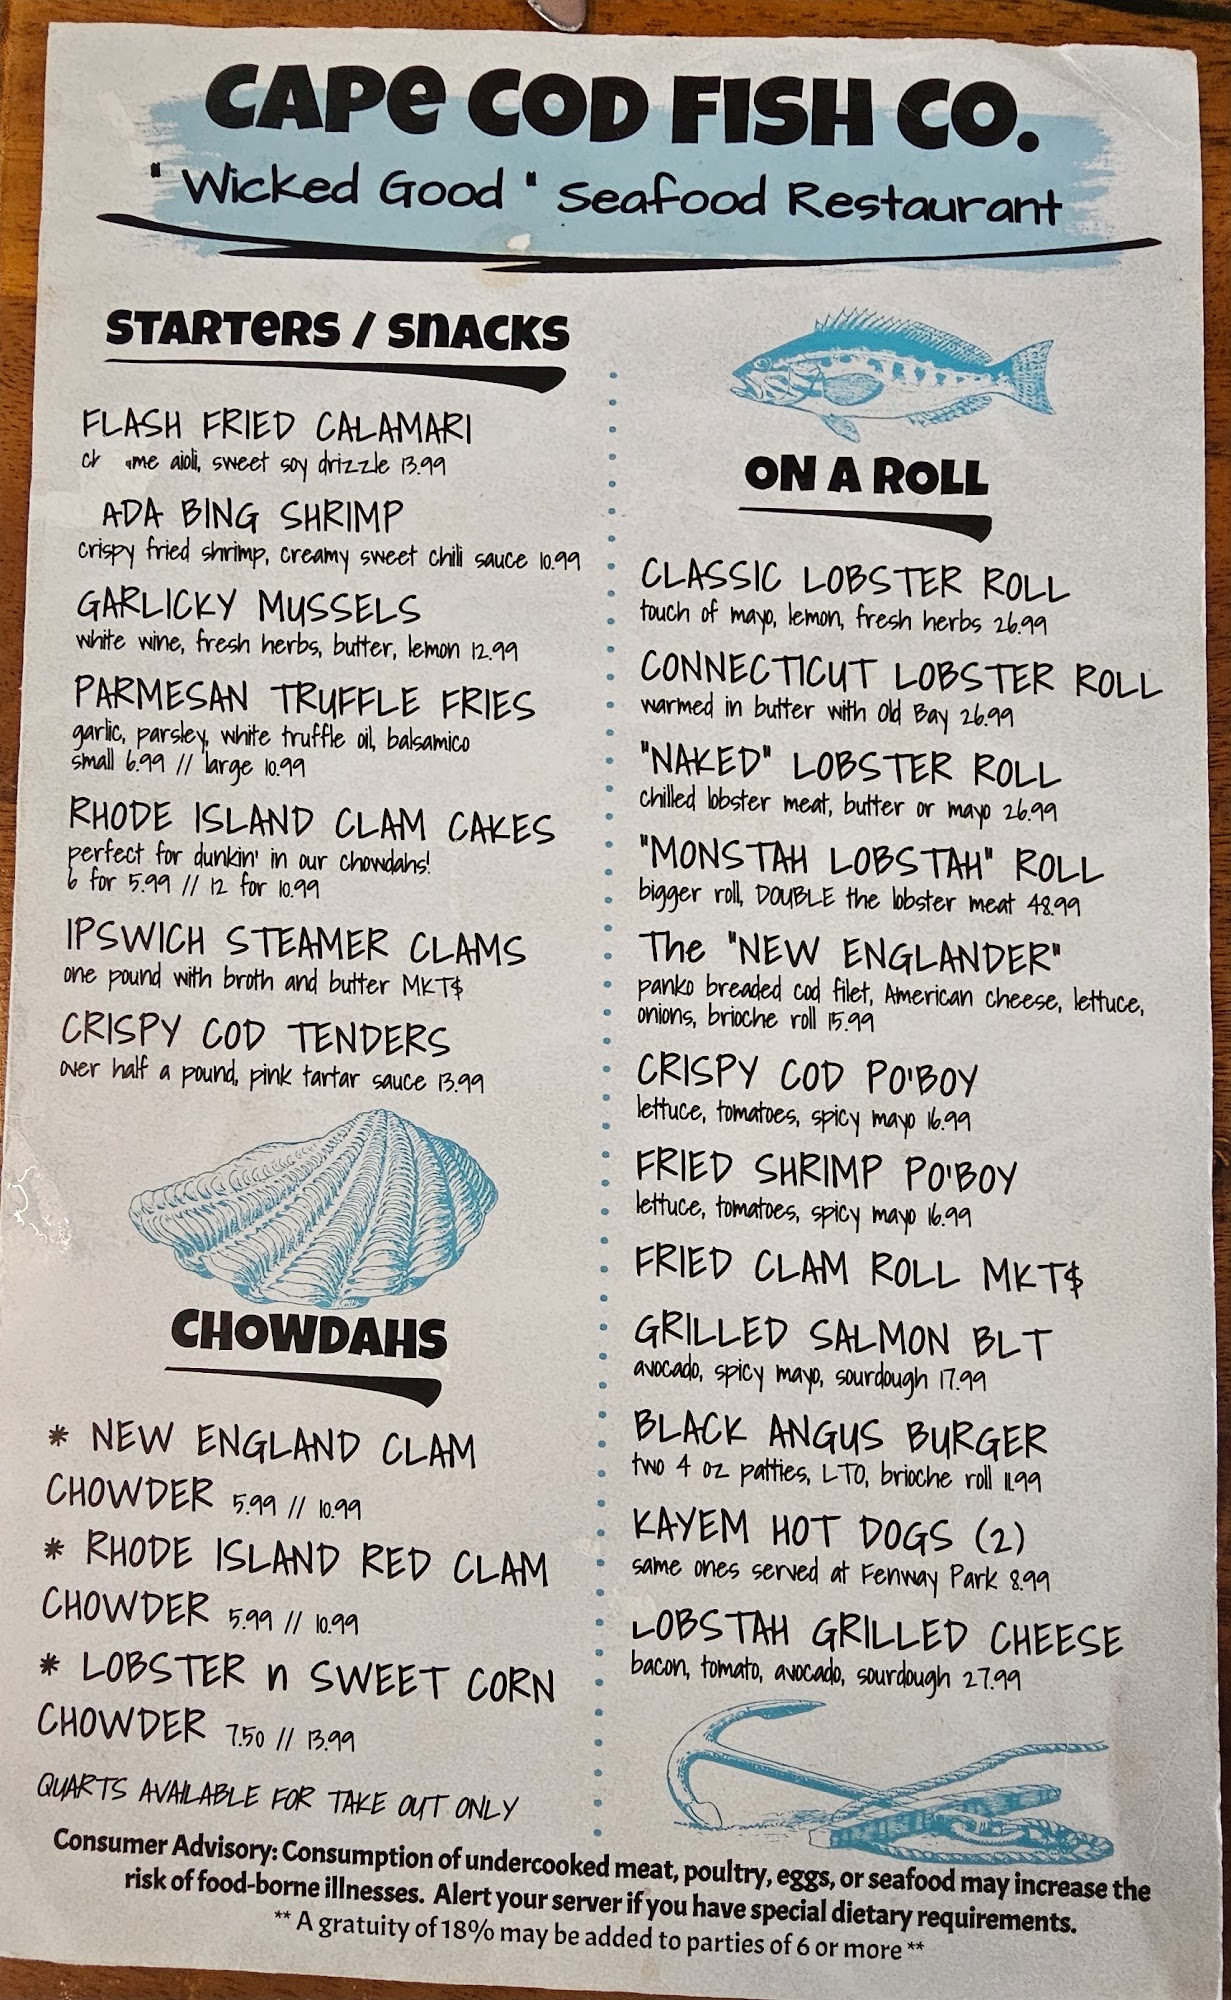 CAPE COD FISH CO.
"Wicked Good" Seafood Restaurant
STARTERS / SNACKS
FLASH FRIED CALAMARI
aioli, sweet soy drizzle 13.99
ADA BING SHRIMP
crispy fried shrimp, creamy sweet chili sauce 10.99
GARLICKY MUSSELS
white wine, fresh herbs, butter, lemon 12.99
PARMESAN TRUFFLE FRIES
garlic, parsley, white truffle oil, balsamico
small 6.99 // large 10.99
RHODE ISLAND CLAM CAKES
perfect for dunkin' in our chowdahs!
6 for 5.99 // 12 for 10.99
IPSWICH STEAMER CLAMS
one pound with broth and butter MKT$
CRISPY COD TENDERS
over half a pound, pink tartar sauce 13.99
CHOWDAHS
* NEW ENGLAND CLAM
CHOWDER 5.99 // 10.99
* RHODE ISLAND RED CLAM
CHOWDER 5.99 // 10.99
* LOBSTER n SWEET CORN
CHOWDER 7.50 // 13.99
QUARTS AVAILABLE FOR TAKE OUT ONLY
ON A ROLL
CLASSIC LOBSTER ROLL
touch of mayo, lemon, fresh herbs 26.99
CONNECTICUT LOBSTER ROLL
warmed in butter with Old Bay 26.99
"NAKED" LOBSTER ROLL
chilled lobster meat, butter or mayo 26.99
"MONSTAH LOBSTAH" ROLL
bigger roll, DOUBLE the lobster meat 48.99
The "NEW ENGLANDER"
panko breaded cod filet, American cheese, lettuce,
onions, brioche roll 15.99
CRISPY COD PO'BOY
lettuce, tomatoes, spicy mayo 16.99
FRIED SHRIMP PO'BOY
lettuce, tomatoes, spicy mayo 16.99
FRIED CLAM ROLL MKT$
GRILLED SALMON BLT
avocado, spicy mayo, sourdough 17.99
BLACK ANGUS BURGER
two 4 oz patties, LTO, brioche roll 11.99
KAYEM HOT DOGS (2)
same ones served at Fenway Park 8.99
LOBSTAH GRILLED CHEESE
bacon, tomato, avocado, sourdough 27.99
Consumer Advisory: Consumption of undercooked meat, poultry, eggs, or seafood may increase the
risk of food-borne illnesses. Alert your server if you have special dietary requirements.
** A gratuity of 18% may be added to parties of 6 or more **